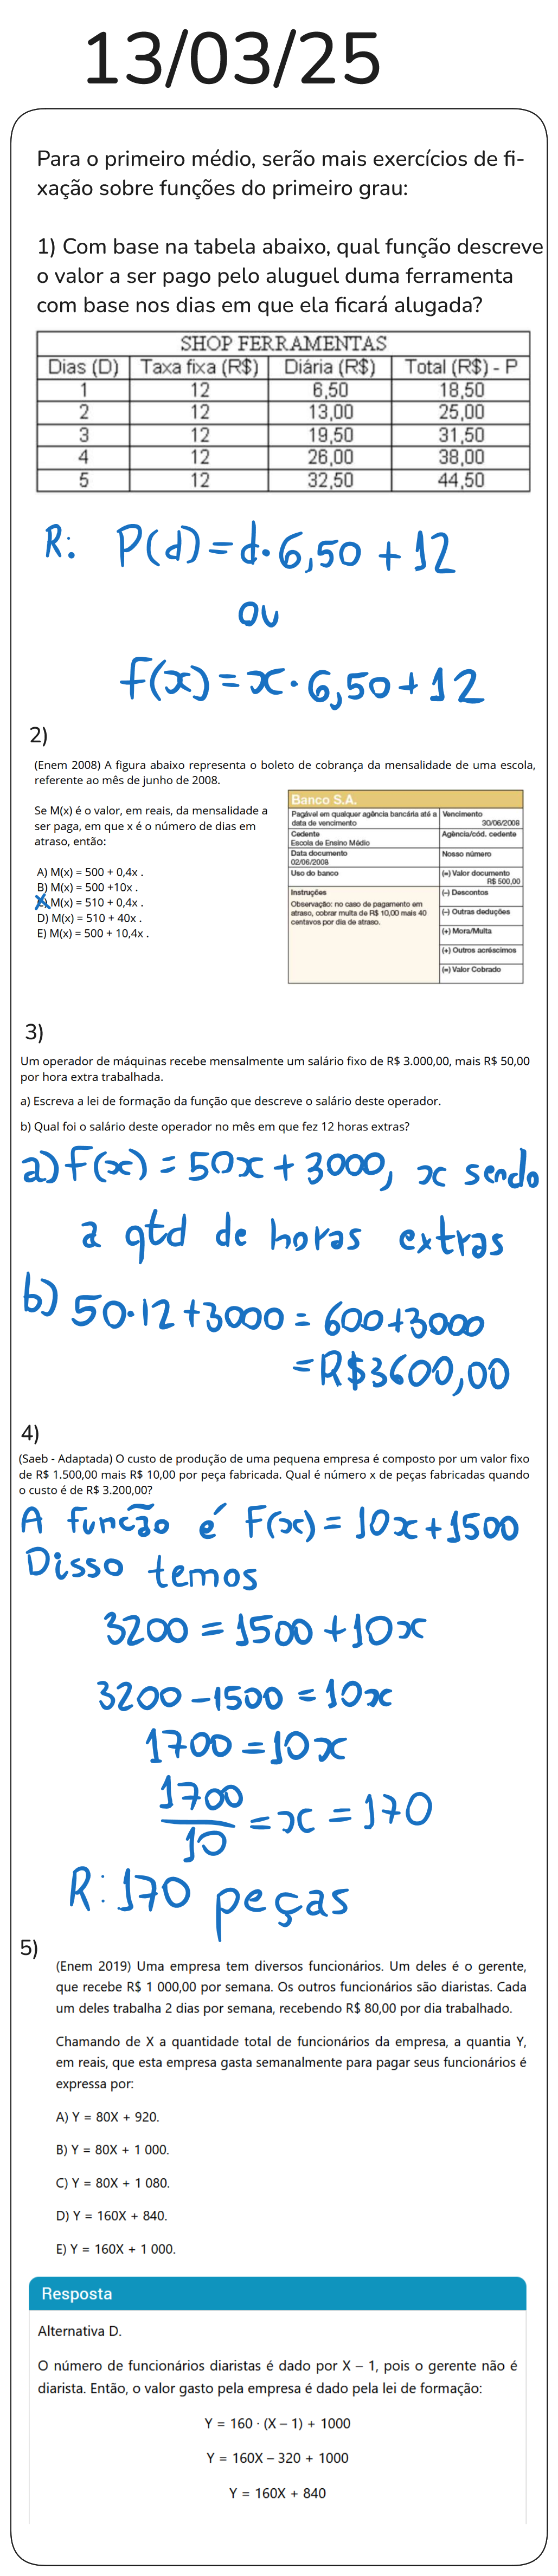 13/03/25
Para o primeiro médio, serão mais exercícios de fi-
xação sobre funções do primeiro grau:
1) Com base na tabela abaixo, qual função descreve
o valor a ser pago pelo aluguel duma ferramenta
com base nos dias em que ela ficará alugada?
SHOP FERRAMENTAS
Dias (D) Taxa fixa (R$) Diária (R$) Total (R$) - P
1 12 6,50 18,50
2 12 13,00 25,00
3 12 19,50 31,50
4 12 26,00 38,00
5 12 32,50 44,50
R: P(d) = d·6,50 + 12
ou
f(x) = x·6,50 + 12
2)
(Enem 2008) A figura abaixo representa o boleto de cobrança da mensalidade de uma escola,
referente ao mês de junho de 2008.
Se M(x) é o valor, em reais, da mensalidade a
ser paga, em que x é o número de dias em
atraso, então:
A) M(x) = 500 + 0,4x .
B) M(x) = 500 +10x .
C) M(x) = 510 + 0,4x .
D) M(x) = 510 + 40x .
E) M(x) = 500 + 10,4x .
Banco S.A.
Pagável em qualquer agência bancária até a
data de vencimento
Vencimento
30/06/2008
Cedente
Escola de Ensino Médio
Agência/cód. cedente
Data documento
02/06/2008
Nosso número
Uso do banco
(=) Valor documento
R$ 500,00
Instruções
Observação: no caso de pagamento em
atraso, cobrar multa de R$ 10,00 mais 40
centavos por dia de atraso.
(-) Descontos
(-) Outras deduções
(+) Mora/Multa
(+) Outros acréscimos
(=) Valor Cobrado
3)
Um operador de máquinas recebe mensalmente um salário fixo de R$ 3.000,00, mais R$ 50,00
por hora extra trabalhada.
a) Escreva a lei de formação da função que descreve o salário deste operador.
b) Qual foi o salário deste operador no mês em que fez 12 horas extras?
a) f(x) = 50x + 3000, x sendo
a qtd de horas extras
b) 50·12+3000 = 600+3000
= R$3600,00
4)
(Saeb - Adaptada) O custo de produção de uma pequena empresa é composto por um valor fixo
de R$ 1.500,00 mais R$ 10,00 por peça fabricada. Qual é número x de peças fabricadas quando
o custo é de R$ 3.200,00?
A função é F(x) = 10x+1500
Disso temos
3200 = 1500 + 10x
3200 - 1500 = 10x
1700 = 10x
1700/10 = x = 170
R: 170 peças
5)
(Enem 2019) Uma empresa tem diversos funcionários. Um deles é o gerente,
que recebe R$ 1 000,00 por semana. Os outros funcionários são diaristas. Cada
um deles trabalha 2 dias por semana, recebendo R$ 80,00 por dia trabalhado.
Chamando de X a quantidade total de funcionários da empresa, a quantia Y,
em reais, que esta empresa gasta semanalmente para pagar seus funcionários é
expressa por:
A) Y = 80X + 920.
B) Y = 80X + 1 000.
C) Y = 80X + 1 080.
D) Y = 160X + 840.
E) Y = 160X + 1 000.
Resposta
Alternativa D.
O número de funcionários diaristas é dado por X – 1, pois o gerente não é
diarista. Então, o valor gasto pela empresa é dado pela lei de formação:
Y = 160 · (X – 1) + 1000
Y = 160X – 320 + 1000
Y = 160X + 840